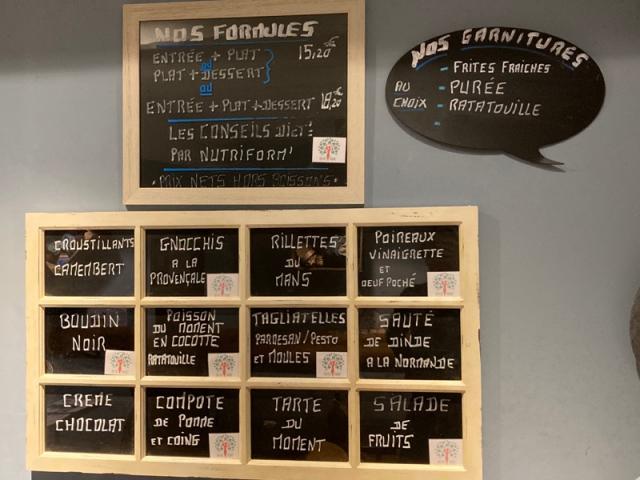 NOS FORMULES
ENTRÉE + PLAT 15,20€
ou
PLAT + DESSERT
ou
ENTRÉE + PLAT + DESSERT 18,20€
LES CONSEILS DIET'
PAR NUTRIFORM'
PRIX NETS HORS BOISSONS
NOS GARNITURES
AU CHOIX
- FRITES FRAICHES
- PURÉE
- RATATOUILLE
-
CROUSTILLANTS
CAMEMBERT
GNOCCHIS
A LA
PROVENÇALE
RILLETTES
DU
MANS
POIREAUX
VINAIGRETTE
ET
OEUF POCHÉ
BOUDIN
NOIR
POISSON
DU MOMENT
EN COCOTTE
RATATOUILLE
TAGLIATELLES
PARMESAN / PESTO
ET MOULES
SAUTÉ
DE DINDE
A LA NORMANDE
CREME
CHOCOLAT
COMPOTE
DE POMME
ET COING
TARTE
DU
MOMENT
SALADE
DE
FRUITS